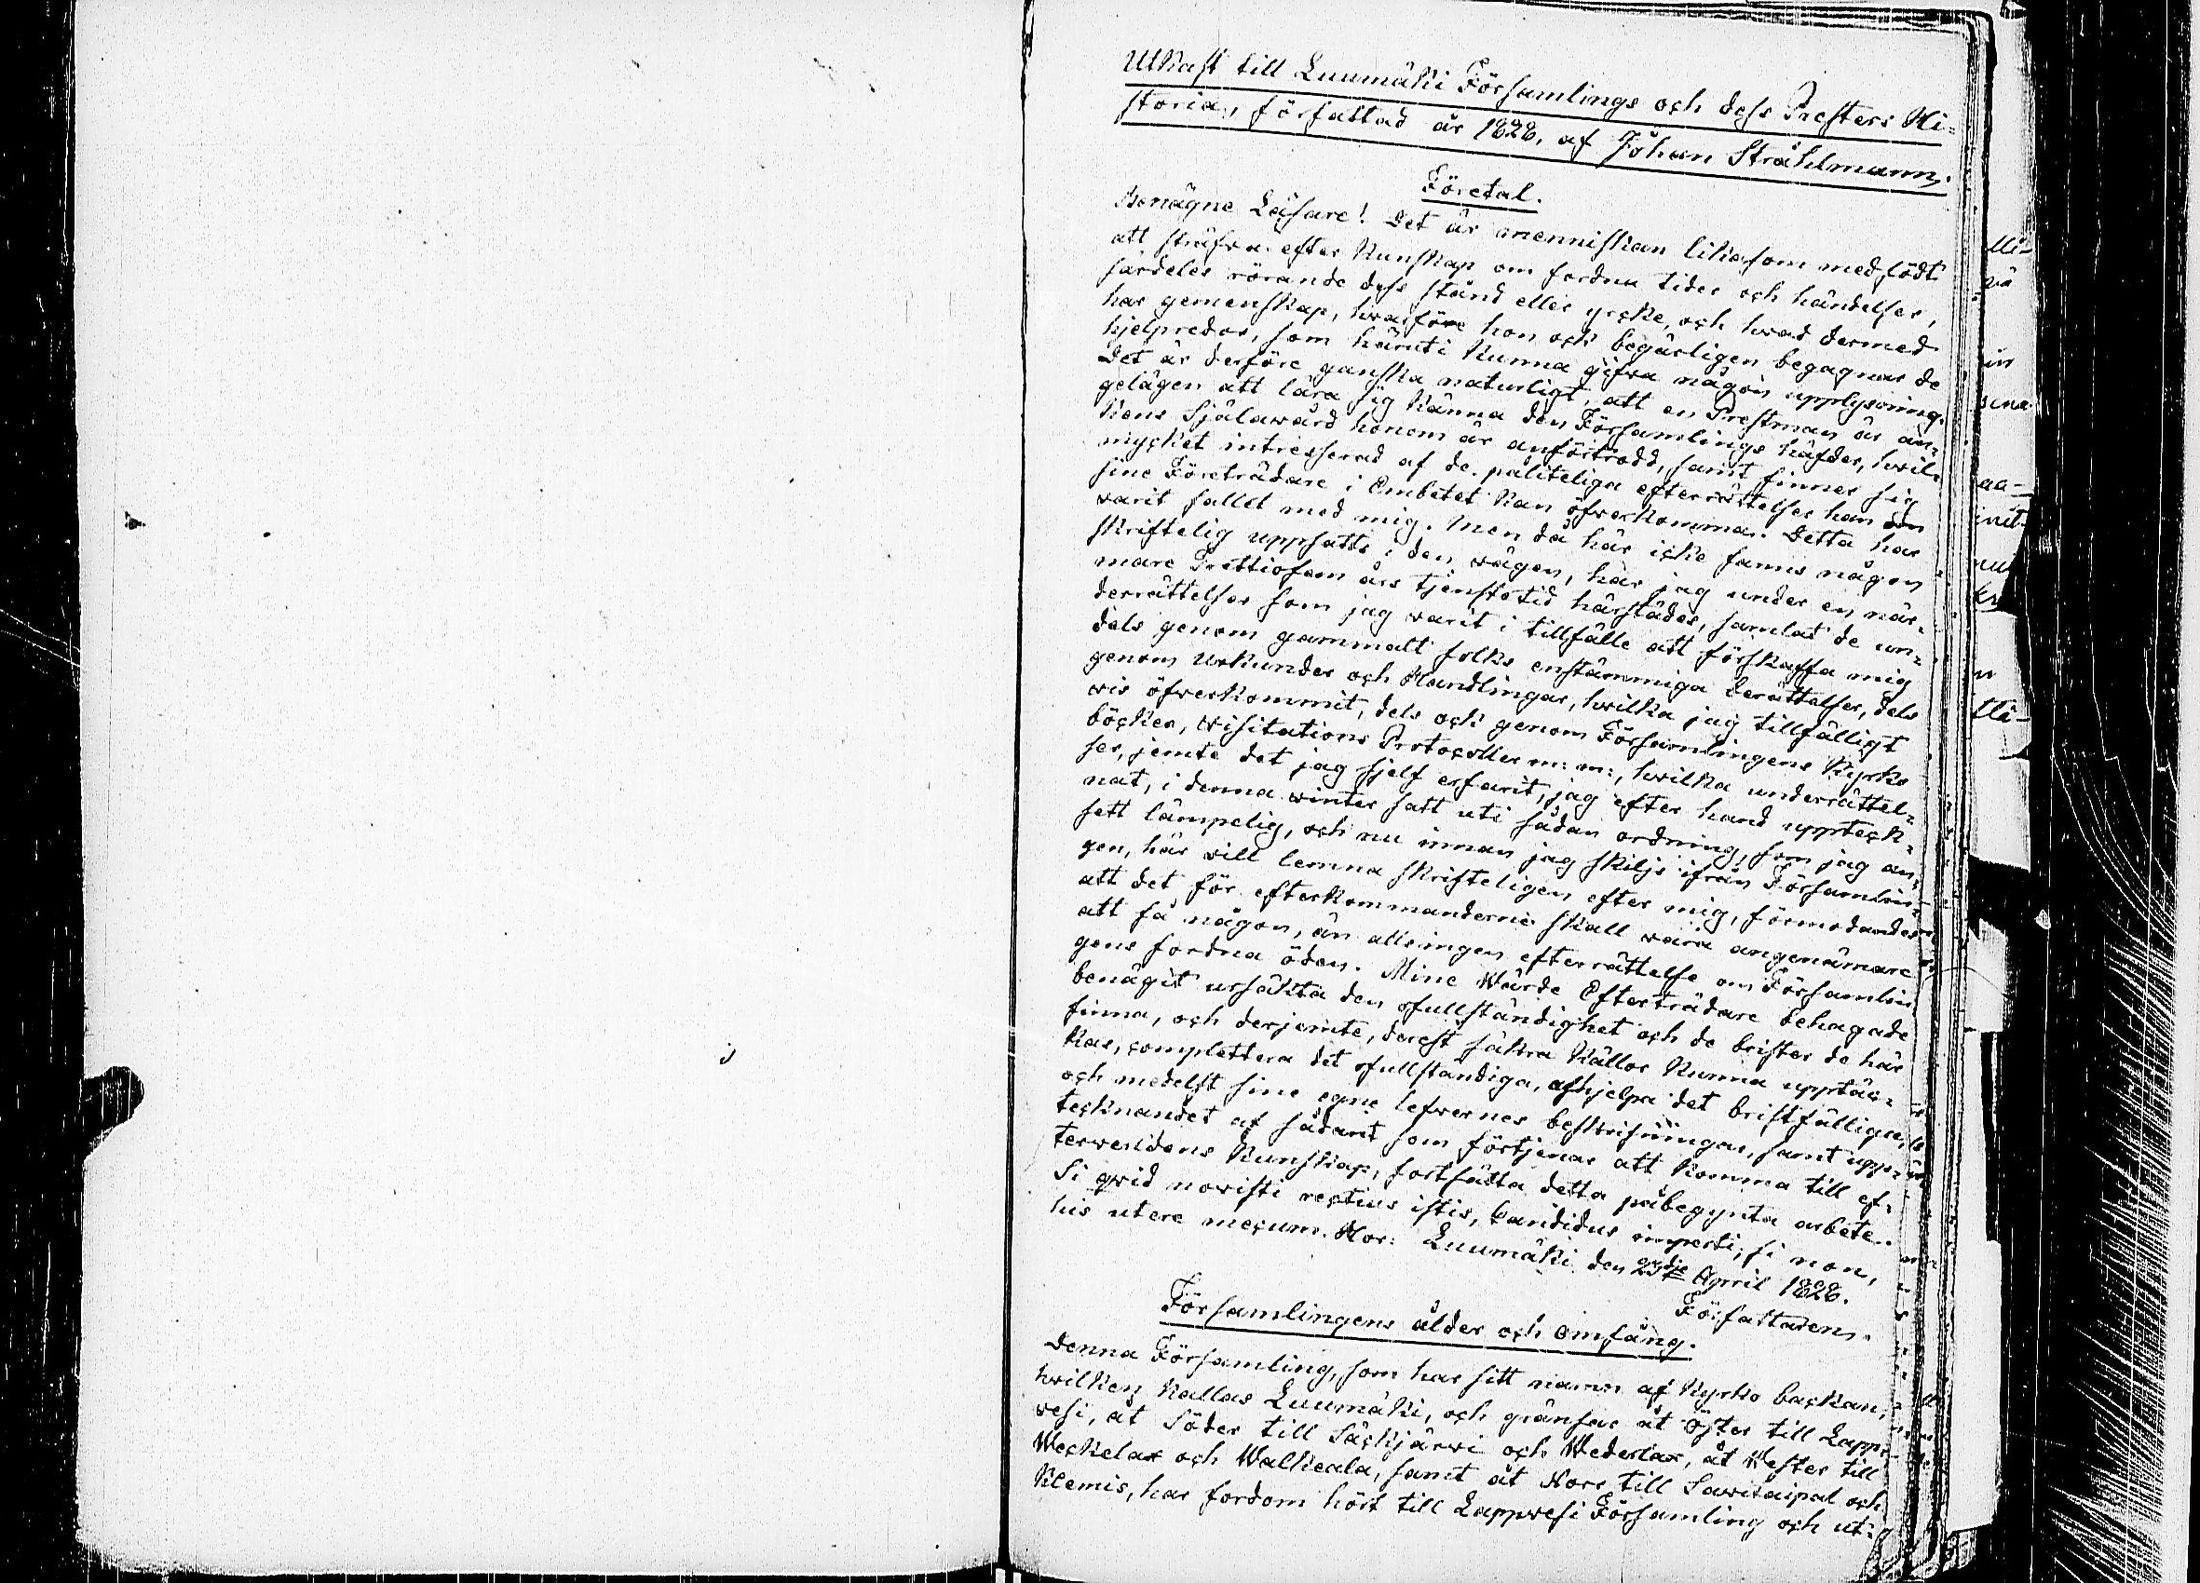 Utkast till Luumäki Församlings och dess Presters Hi-
storia, författad år 1828, af Johan Stråhlmann.
Företal.
Benägne Läsare! Det är menniskan likasom medfödt
att sträfwa efter Kunskap om fordna tider och händelser,
särdeles rörande dess stånd eller yrcke, och hwad dermed
har gemenskap, hwarföre hon ock begärligen begagnar de
hjelpredor, som häruti Kunna gifwa någon upplysning.
Det är derföre ganska naturligt, att en Prestman är an-
gelägen att lära sig Känna den Församlings häfder, hwil-
kens Själawård honom är anförtrodd, samt finner sig
mycket intresserad af de pålitelige efterrättelser han om
sine Företrädare i Embetet Kan öfwerkomma. Detta har
warit fallet med mig. Men då här icke fanns någon
skriftelig uppsatts i den wägen, har jag under en när-
mare Trettiofem års tjenstetid härstädes, samlat de un-
derrättelser som jag warit i tillfälle att förskaffa mig
dels genom gammalt folks enstämmiga berättelser, dels
genom Urkunder och Handlingar, hwilka jag tillfälligt
wis öfwerkommit, dels ock genom Församlingens Kyrko
böcker, Wisitations Protocoller m: m:, hwilka underrättel-
ser, jemte det jag sjelf erfarit, jag efter hand uppteck-
nat, i denna winter satt uti sådan ordning, som jag an-
sett lämpelig, och nu innan jag skiljs ifrån Församlin-
gen, här will lemna skrifteligen efter mig, förmodandes
att det för efterkommanderne skall wara angenämare
att få någon, än alls ingen efterrättelse om Församlin
gens fordna öden. Mine Wärde Efterträdare behagade
benägit ursäkta den ofullständighet och de brister de här
finna, och derjemte, derest säkra Källor Kunna upptäc-
kas, complettera det ofullständiga, afhjelpa det bristfälliga,
och medelst sine egne lefwernes beskrifningar, samt upp-
tecknandet af sådant som förtjenar att Komma till ef-
terwerldens Kunskap, fortsätta detta påbegynta arbete.
Si qvid novisti rectius istis, candidus imperti; si non,
his utere mecum. Hor: Luumäki den 23die April 1828.
Författaren.
Församlingens ålder och omfång.
Denna Församling, som har sitt namn af Kyrko backan,
hwilken Kallas Luumäki, och gränsar åt Öster till Lapp-
wesi, åt Söder till Säckjärwi och Wederlax, åt Wester till
Weckelax och Walkeala, samt åt Norr till Sawitaipal och
Klemis, har fordom hört till Lappwesi Församling och ut-